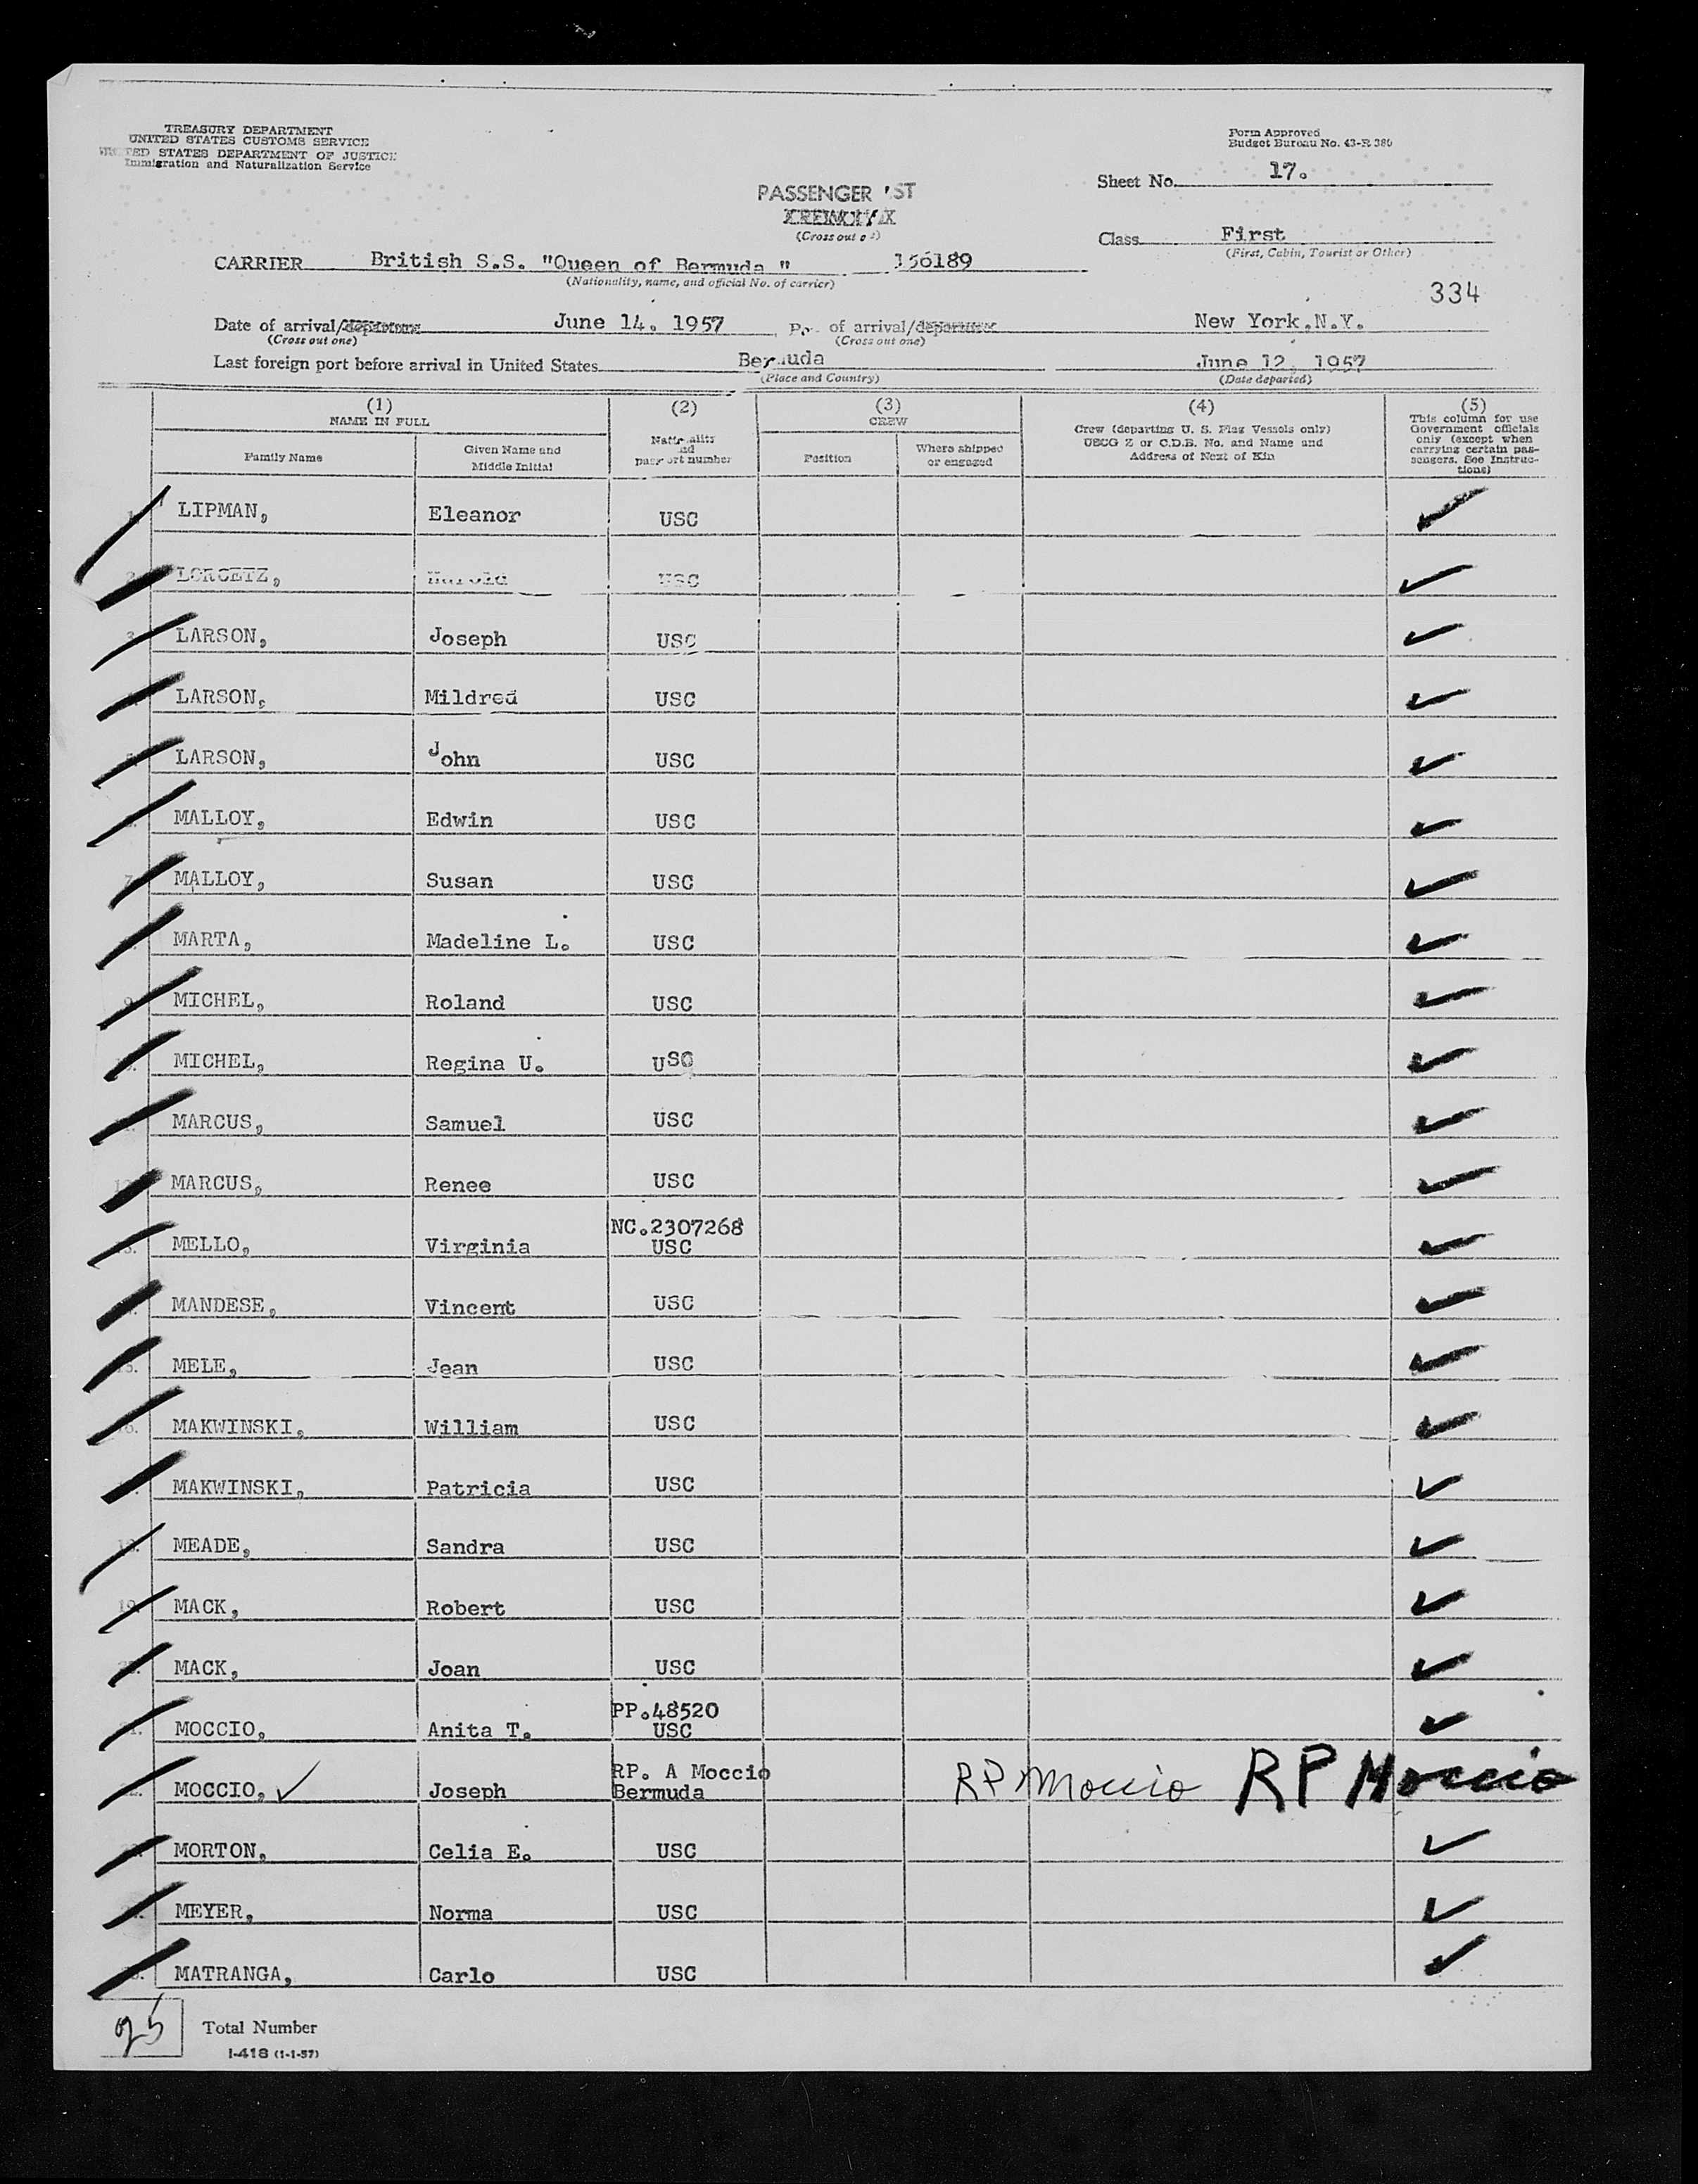 TREASURY DEPARTMENT
UNITED STATES CUSTOMS SERVICE
UNITED STATES DEPARTMENT OF JUSTICE
Immigration and Naturalization Service
Form Approved
Budget Bureau No. 43-R 380
Sheet No. 17.
PASSENGER ST
(Cross out
Class First
(First, Cabin, Tourist or Other)
CARRIER British S.S. "Queen of Bermuda " 156189
(Nationality, name, and official No. of carrier)
334
Date of arrival/departure June 14. 1957 of arrival/departure New York.N.Y.
(Cross out one) (Cross out one)
Last foreign port before arrival in United States Bermuda June 12, 1957
(Place and Country) (Date departed)
(1) NAME IN FULL
Family Name
Given Name and Middle Initial
(2) Nationality and passport number
(3) CREW
Position
Where shipped or engaged
(4) Crew (departing U. S. Flag Vessels only) USCG Z or C.D.B. No. and Name and Address of Next of Kin
(5) This column for use Government officials only (except when carrying certain passengers. See Instructions)
LIPMAN, Eleanor USC
2. Harold USC
3. LARSON, Joseph USC
LARSON, Mildred USC
LARSON, John USC
MALLOY, Edwin USC
7. MALLOY, Susan USC
MARTA, Madeline L. USC
9. MICHEL, Roland USC
MICHEL, Regina U. USC
MARCUS, Samuel USC
MARCUS, Renee USC
NC.2307268
MELLO, Virginia USC
MANDESE, Vincent USC
MELE, Jean USC
MAKWINSKI, William USC
MAKWINSKI, Patricia USC
MEADE, Sandra USC
19. MACK, Robert USC
MACK, Joan USC
PP.48520
MOCCIO, Anita T. USC
RP. A Moccio
MOCCIO, ✓ Joseph Bermuda RP Moccio RP Moccio
MORTON, Celia E. USC
MEYER, Norma USC
MATRANGA, Carlo USC
25 Total Number
I-418 (1-1-57)